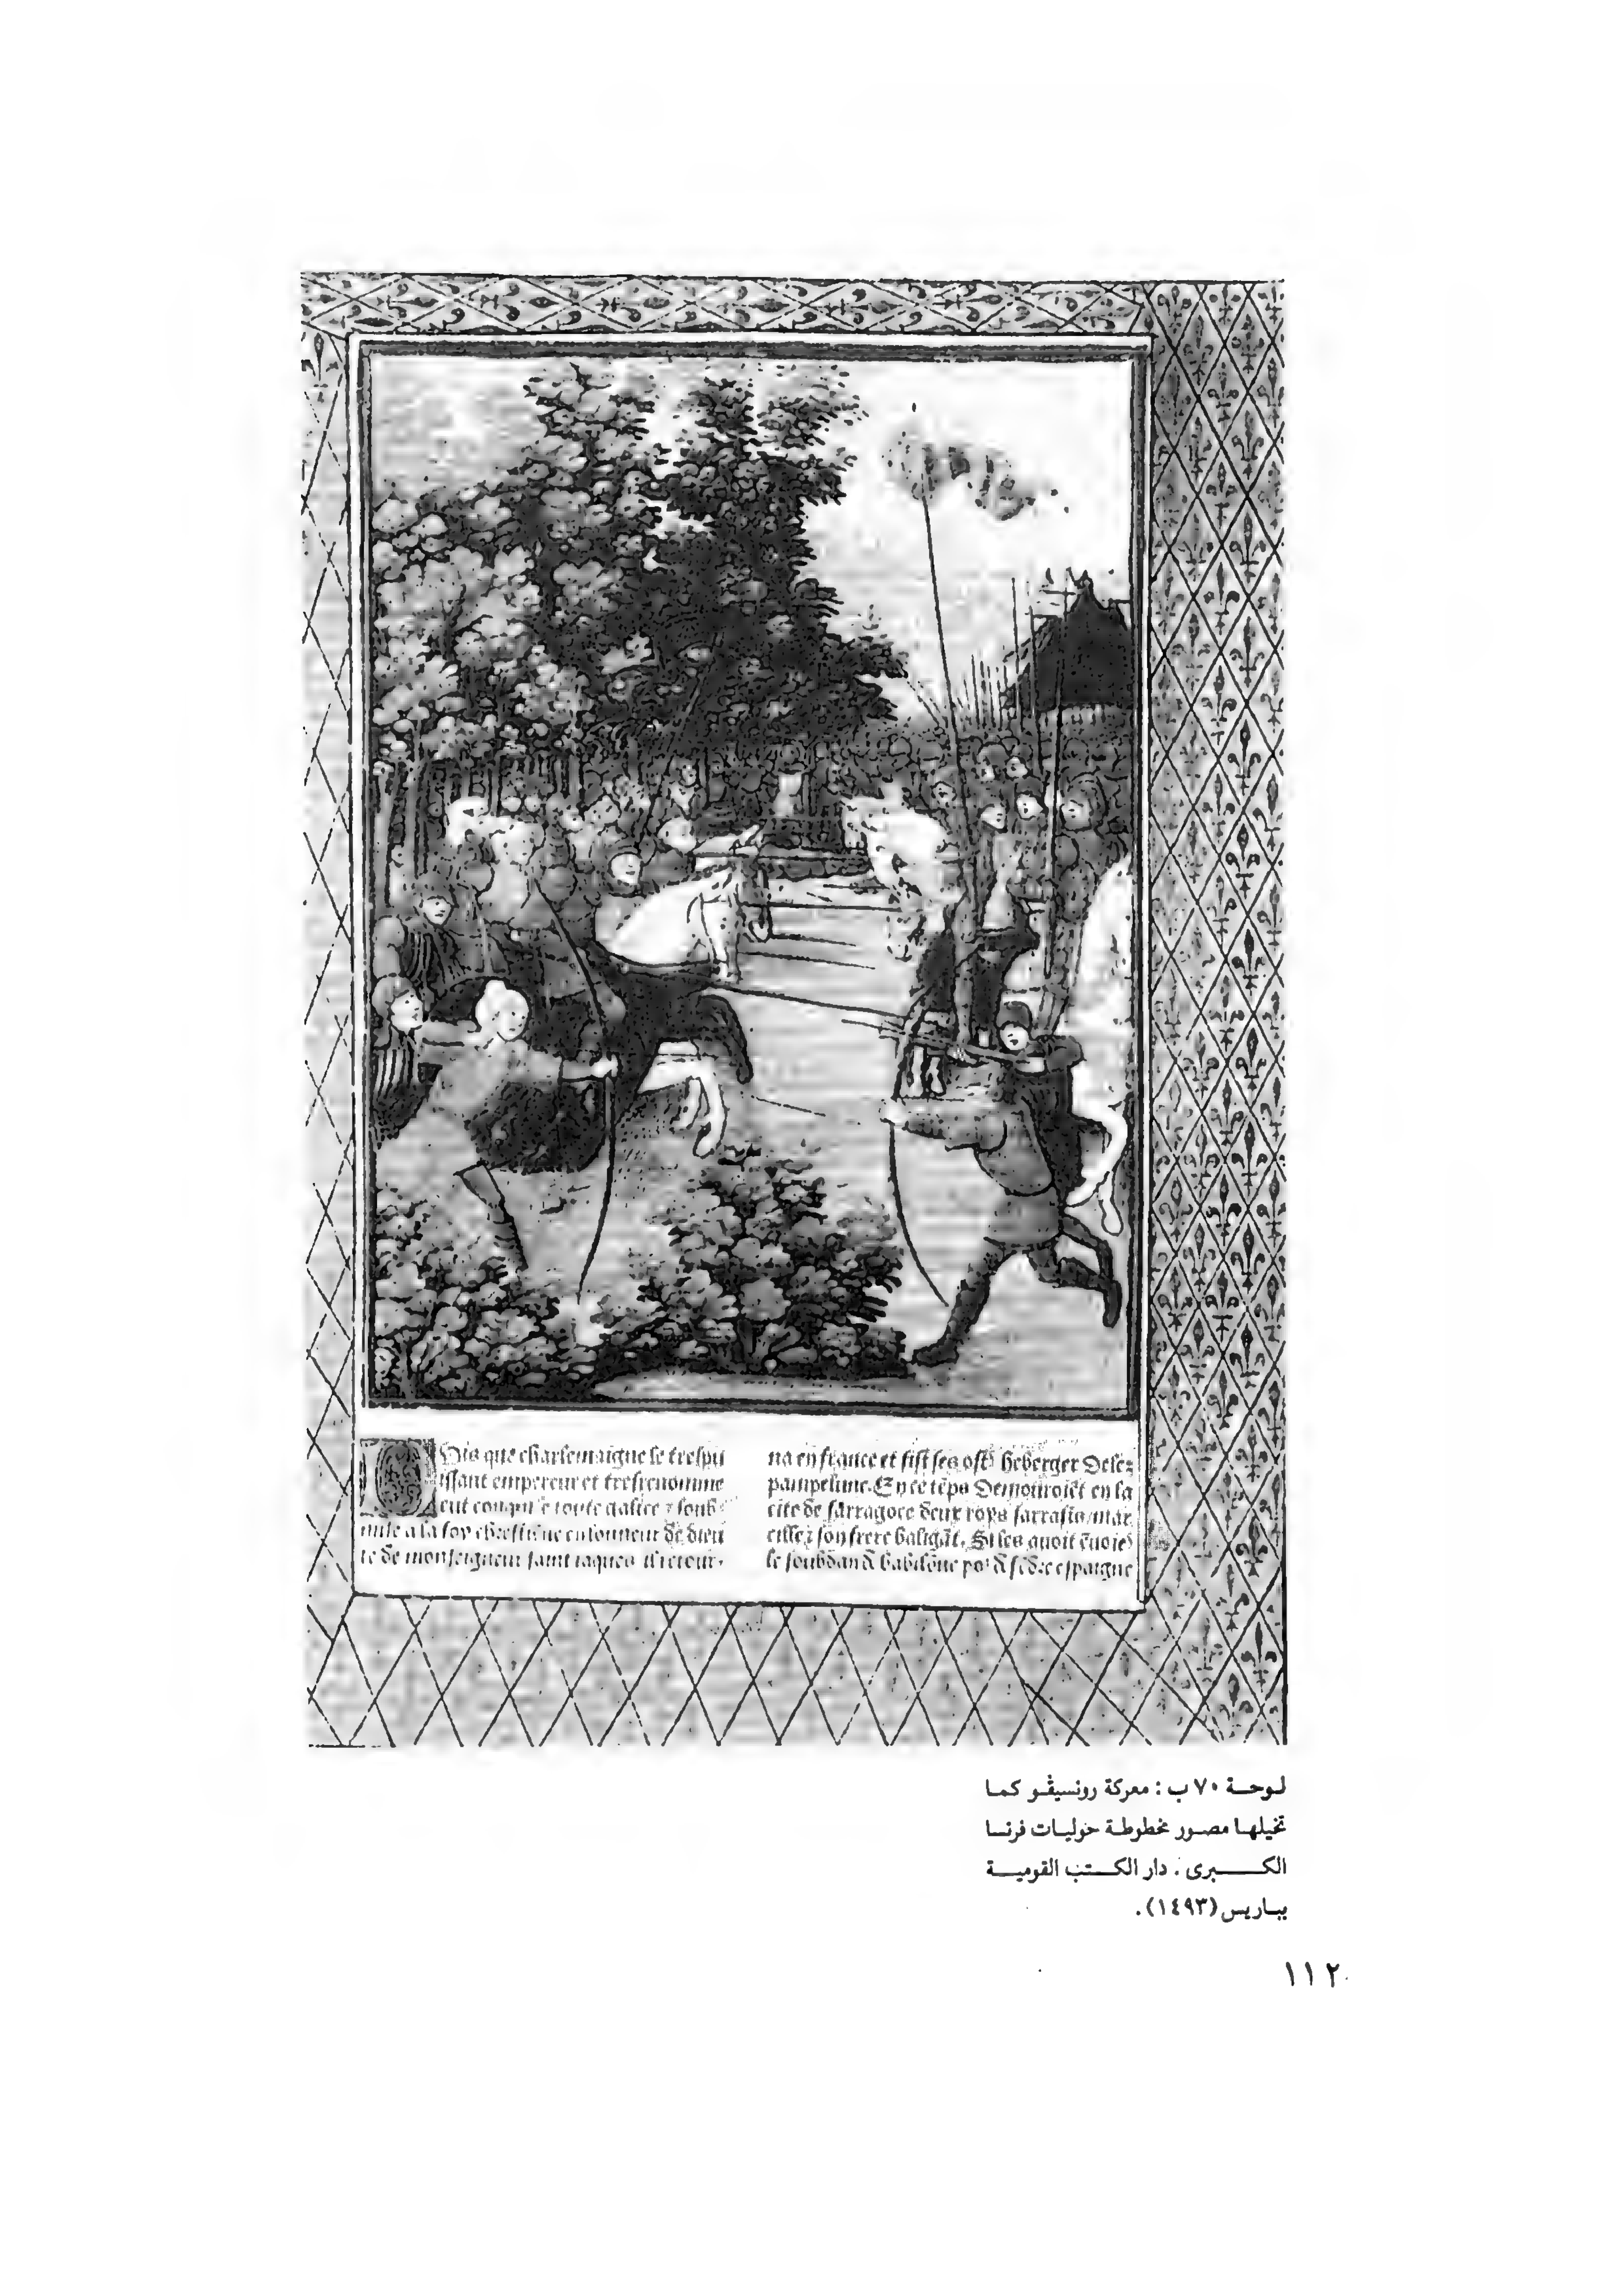 Pis que charlemaigne le trespu
issant empereur et tresrenomme
eut conquise toute galice ⁊ soub
mise a la foy chrestienne en lonneur de dieu
⁊ de monseigneur saint iaques il retour
na en france et fist ses ostz heberger delez
pampelune. En ce tẽps demouroiẽt en la
cite de sarragoce deux roys sarrasis / mar
cille ⁊ son frere baligãt. Si les auoit ẽuoie
le soubdan de babilõne en espaigne
لوحة ٧٠ ب : معركة رونسيڤو كما
تخيلها مصور مخطوطة حوليات فرنسا
الكبرى . دار الكتب القومية
بباريس (١٤٩٣) .
١١٢